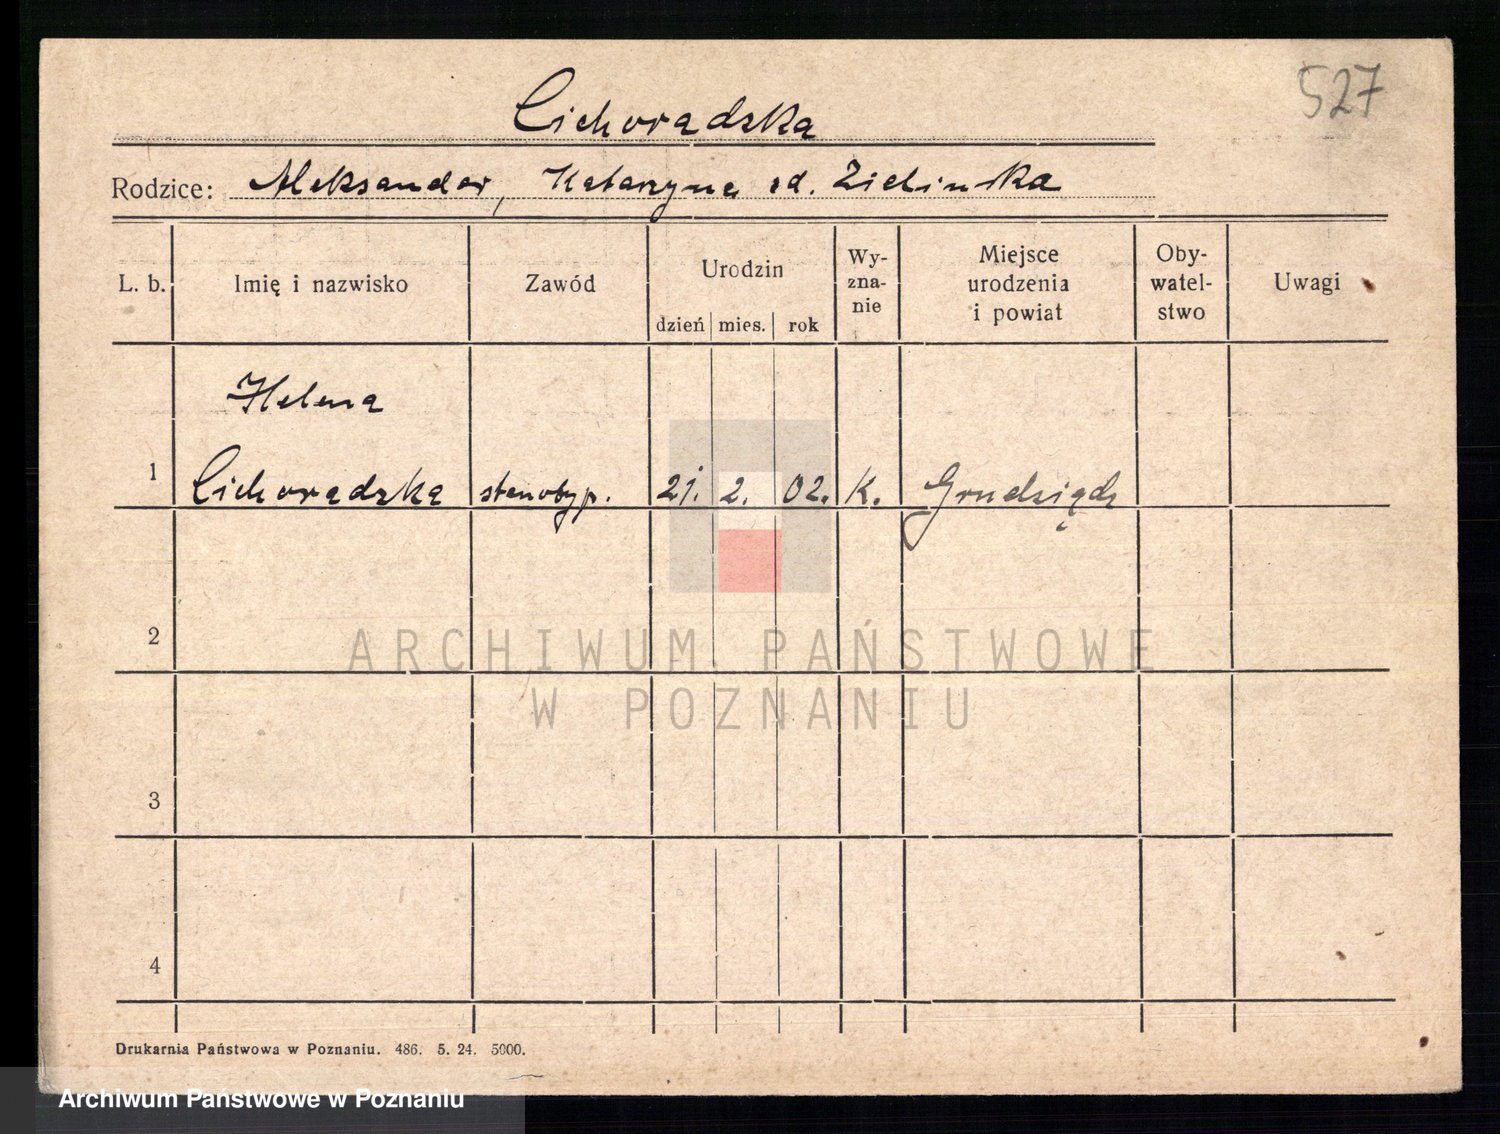 527
Cichorądzka
Rodzice: Aleksander, Katarzyna rd. Zielinska
L. b.
Imię i nazwisko
Zawód
Urodzin
dzień mies. rok
Wy-
zna-
nie
Miejsce
urodzenia
i powiat
Oby-
watel-
stwo
Uwagi
Helena
1 Cichorądzka stenotyp. 21. 2. 02. K. Grudziądz
2
ARCHIWUM PAŃSTWOWE
W POZNANIU
3
4
Drukarnia Państwowa w Poznaniu. 486. 5. 24. 5000.
Archiwum Państwowe w Poznaniu